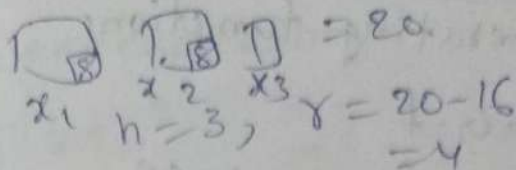 8 8 = 20
x1 x2 x3
n = 3, r = 20-16
= 4